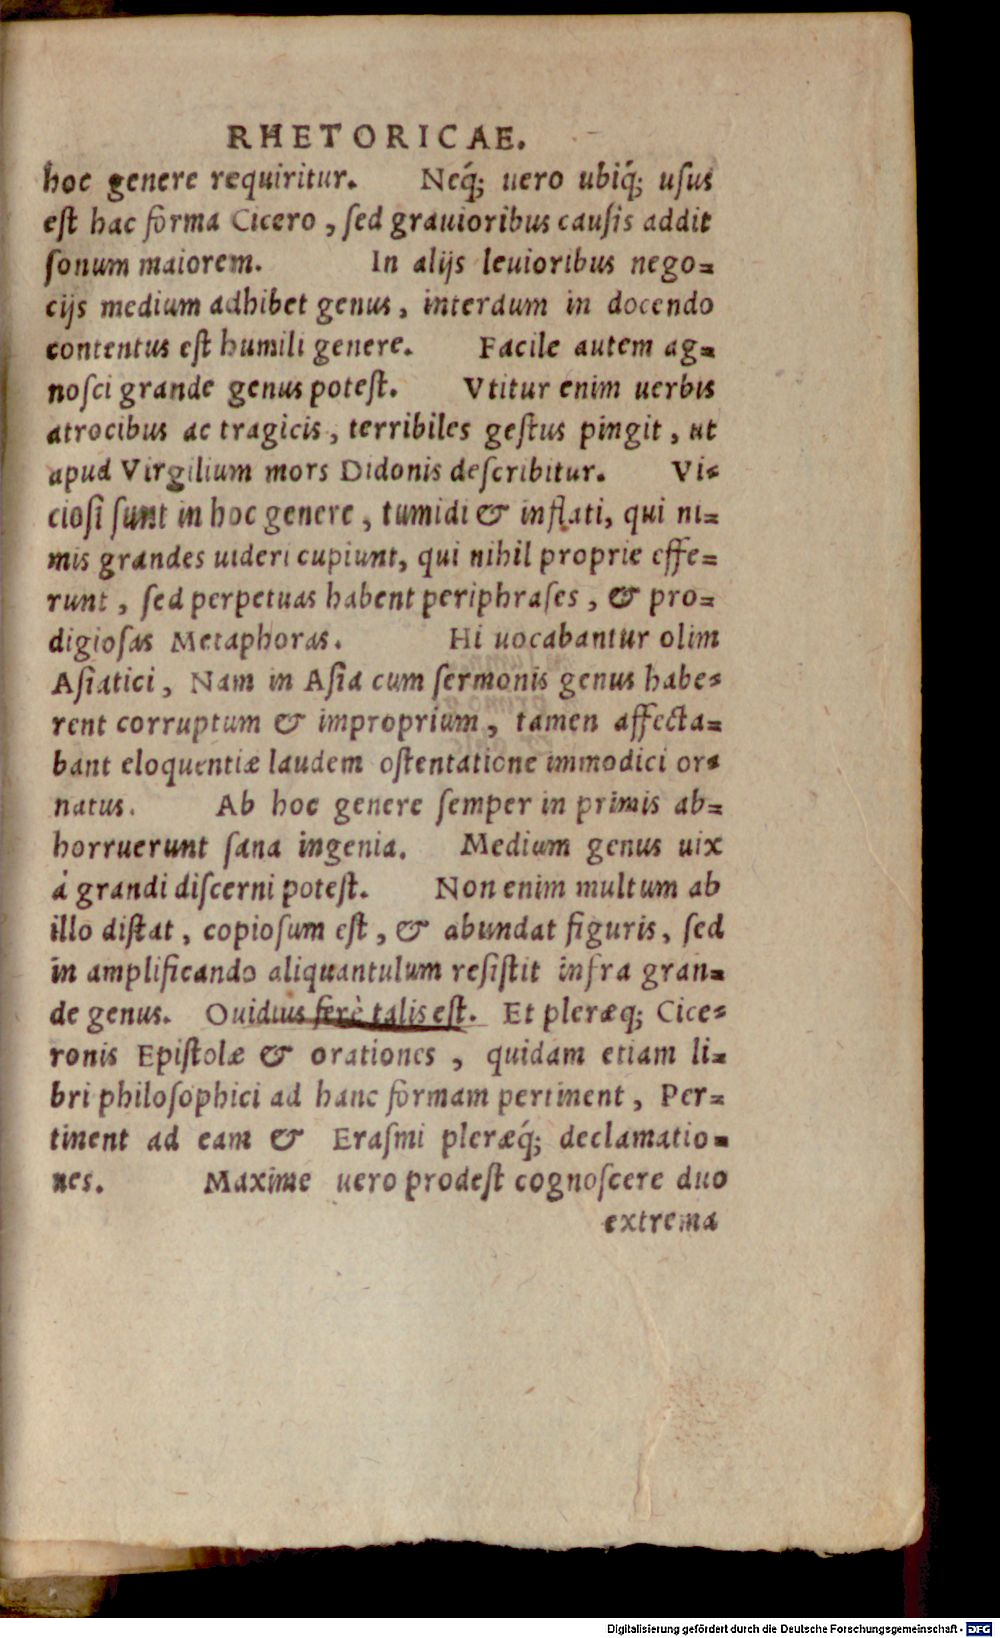 RHETORICAE.
hoc genere requiritur. Neq́; uero ubiq́; uſus
eſt hac forma Cicero, ſed grauioribus cauſis addit
ſonum maiorem. In alijs leuioribus nego=
cijs medium adhibet genus, interdum in docendo
contentus eſt humili genere. Facile autem ag=
noſci grande genus poteſt. Vtitur enim uerbis
atrocibus ac tragicis, terribiles geſtus pingit, ut
apud Virgilium mors Didonis deſcribitur. Vi=
cioſi ſunt in hoc genere, tumidi & inflati, qui ni=
mis grandes uideri cupiunt, qui nihil proprie effe=
runt, ſed perpetuas habent periphraſes, & pro=
digioſas Metaphoras. Hi uocabantur olim
Aſiatici, Nam in Aſia cum ſermonis genus habe=
rent corruptum & improprium, tamen affecta=
bant eloquentiæ laudem oſtentatione immodici or=
natus. Ab hoc genere ſemper in primis ab=
horruerunt ſana ingenia. Medium genus uix
á grandi diſcerni poteſt. Non enim multum ab
illo diſtat, copioſum eſt, & abundat figuris, ſed
in amplificando aliquantulum reſiſtit infra gran=
de genus. Ouidius ferè talis eſt. Et pleræq; Cice=
ronis Epiſtolæ & orationes, quidam etiam li=
bri philoſophici ad hanc formam pertinent, Per=
tinent ad eam & Eraſmi pleræq́; declamatio=
nes. Maxime uero prodeſt cognoſcere duo
extrema
Digitalisierung gefördert durch die Deutsche Forschungsgemeinschaft - DFG